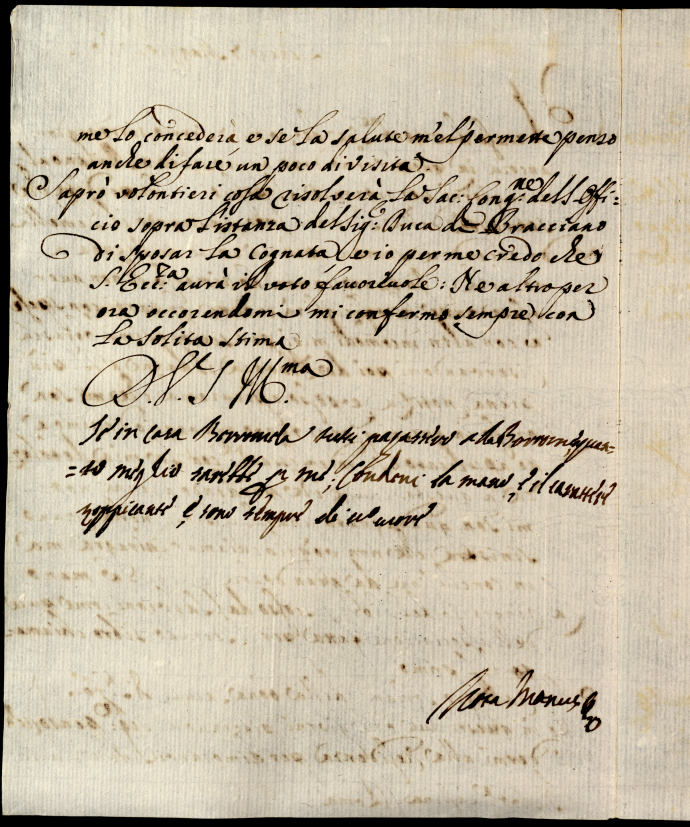 me lo concederà e se la salute m'el permette penso
anche di fare un poco di visita.
Saprò volontieri cosa risolverà la Sac: Cong.ne del S. Offi=
cio sopra l'istanza del Sig: Duca di Bracciano
di sposar la Cognata, e io per me credo che
S. Ecc.za aurà il voto favoreuole: Ne altro per
ora occorrendomi mi confermo sempre con
la solita stima
D. V. S. Ill.ma
Se in casa tutti alla
=to meglio sarebbe per me; la mano, e il carattere
zoppicante e sono sempre di cuore